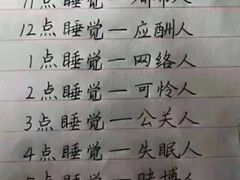 11点睡觉—都市人
12点睡觉—应酬人
1点睡觉—网络人
2点睡觉—可怜人
3点睡觉—公关人
4点睡觉—失眠人
5点睡觉—赌博人